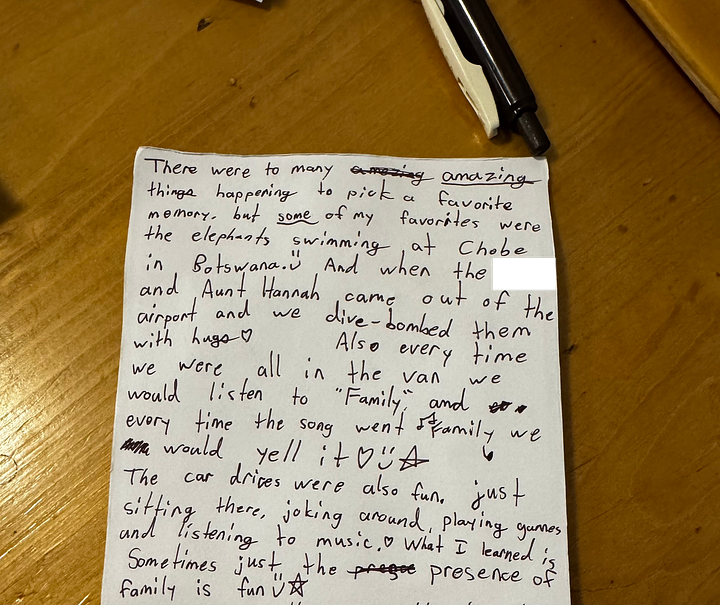 There were to many amazing amazing
things happening to pick a favorite
memory. but some of my favorites were
the elephants swimming at Chobe
in Botswana.ü And when the
and Aunt Hannah came out of the
airport and we dive-bombed them
with hugs♡ Also every time
we were all in the van we
would listen to "Family", and
every time the song went ♫Family we
would yell it♡ü☆
The car drives were also fun. just
sitting there, joking around, playing games
and listening to music.♡ What I learned is
Sometimes just the presence of
family is funü☆